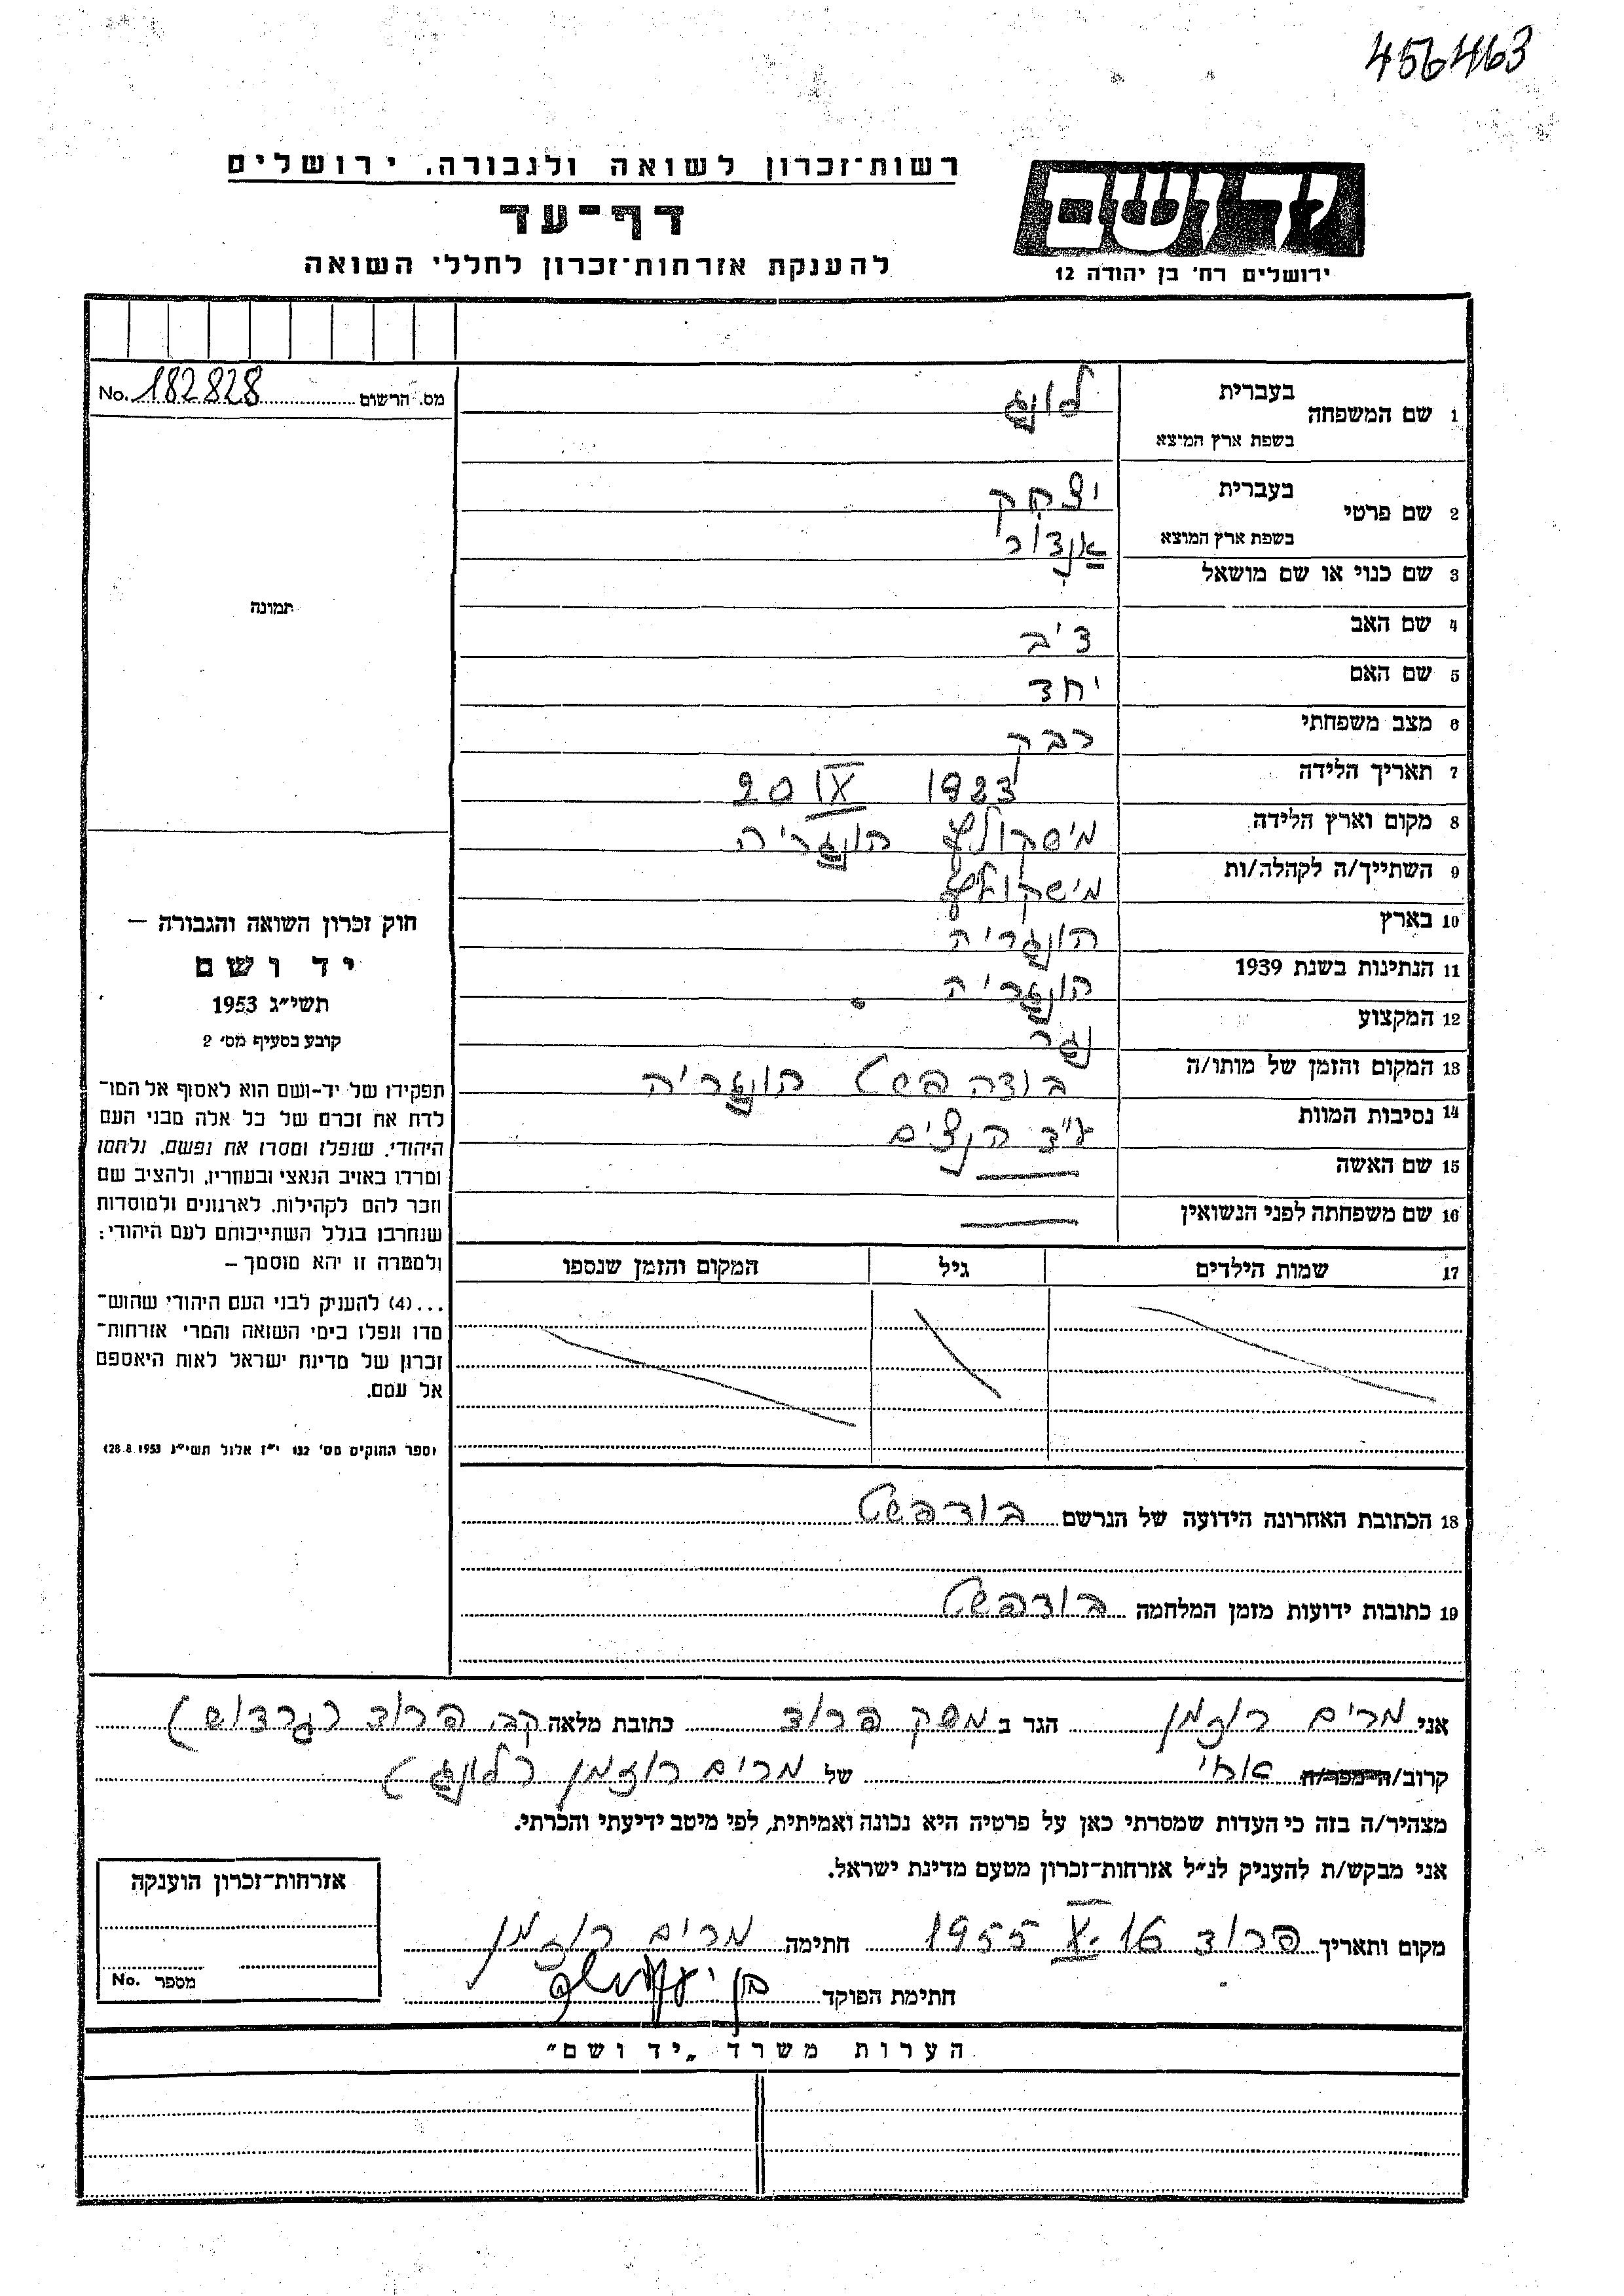 456463
רשות־זכרון לשואה ולגבורה, ירושלים
דף־עד
להענקת אזרחות־זכרון לחללי השואה
יד ושם
ירושלים רח' בן יהודה 12
מס. הרשום 182828 No.
1 שם המשפחה בעברית לונג
בשפת ארץ המוצא
2 שם פרטי בעברית יצחק
בשפת ארץ המוצא אנדור
3 שם כנוי או שם מושאל
4 שם האב
5 שם האם
6 מצב משפחתי רבק
7 תאריך הלידה 1923 IX 20
8 מקום וארץ הלידה מיסקולץ הונגריה
9 השתייך/ה לקהלה/ות מישקולץ
10 בארץ הונגריה
11 הנתינות בשנת 1939 הונגריה
12 המקצוע נגר
13 המקום והזמן של מותו/ה בודהפשט הונגריה
14 נסיבות המוות ע"י הנצים
15 שם האשה
16 שם משפחתה לפני הנשואין
תמונה
חוק זכרון השואה והגבורה —
יד ושם
תשי״ג 1953
קובע בסעיף מס' 2
תפקידו של יד-ושם הוא לאסוף אל המו־
לדת את זכרם של כל אלה מבני העם
היהודי, שנפלו ומסרו את נפשם, נלחמו
ומרדו באויב הנאצי ובעוזריו, ולהציב שם
וזכר להם לקהילות, לארגונים ולמוסדות
שנחרבו בגלל השתייכותם לעם היהודי;
ולמטרה זו יהא מוסמך —
...(4) להענקת לבני העם היהודי שהוש־
מדו ונפלו בימי השואה והמרי אזרחות־
זכרון של מדינת ישראל לאות היאספם
אל עמם.
(ספר החוקים מס' 132 י״ז אלול תשי״ג 28.8.1953)
17 שמות הילדים גיל המקום והזמן שנספו
18 הכתובת האחרונה הידועה של הנרשם בודפשט
19 כתובות ידועות מזמן המלחמה בודפשט
אני מרים רוזמן הגר ב משק פרוד כתובת מלאה קב. פרוד (גרדוש)
קרוב/ה מכר/ה אחי של מרים רוזמן (לונג)
מצהיר/ה בזה כי העדות שמסרתי כאן על פרטיה היא נכונה ואמיתית, לפי מיטב ידיעתי והכרתי.
אני מבקש/ת להעניק לנ״ל אזרחות־זכרון מטעם מדינת ישראל.
מקום ותאריך פרוד 16.X 1955 חתימה מרים רוזמן
חתימת הפוקד
אזרחות־זכרון הוענקה
מספר No.
הערות משרד „יד ושם״